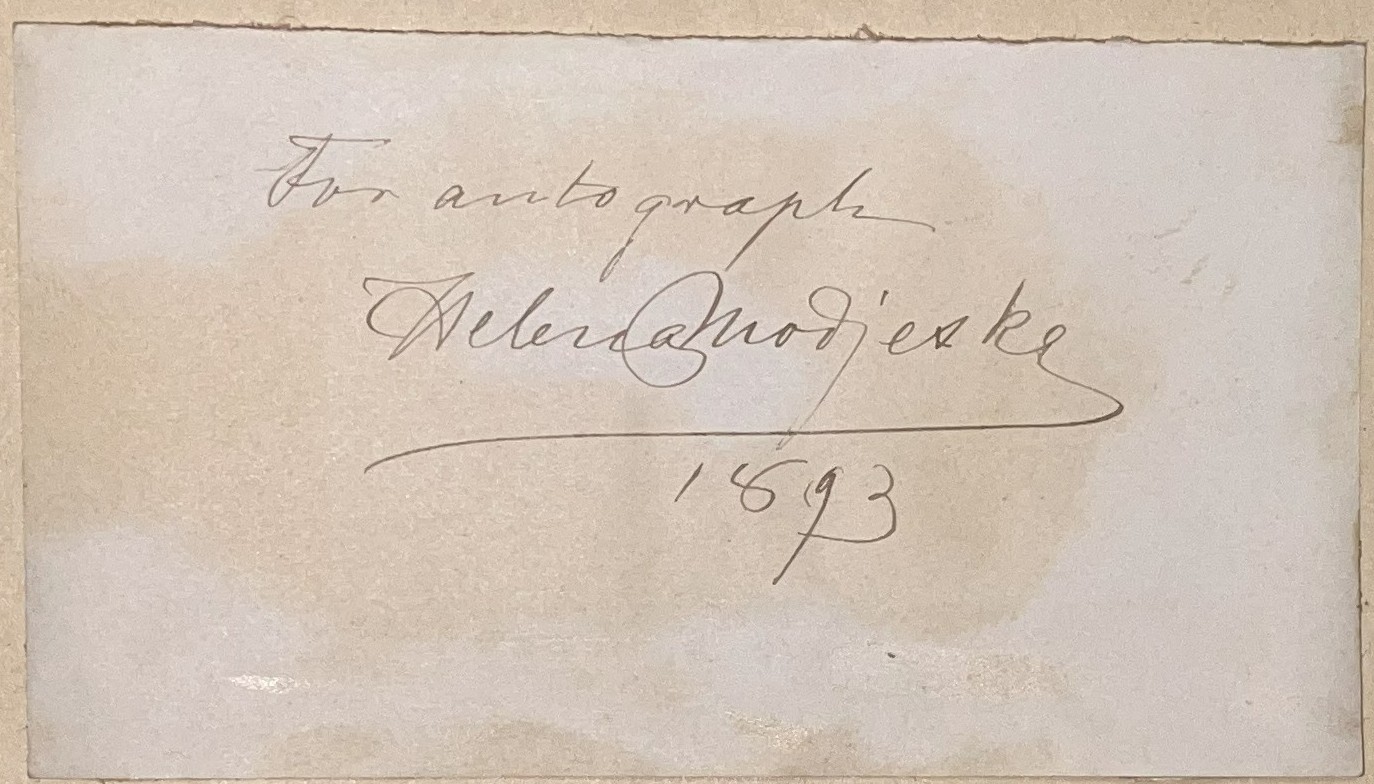 For autograph
Helena Modjeska
1893